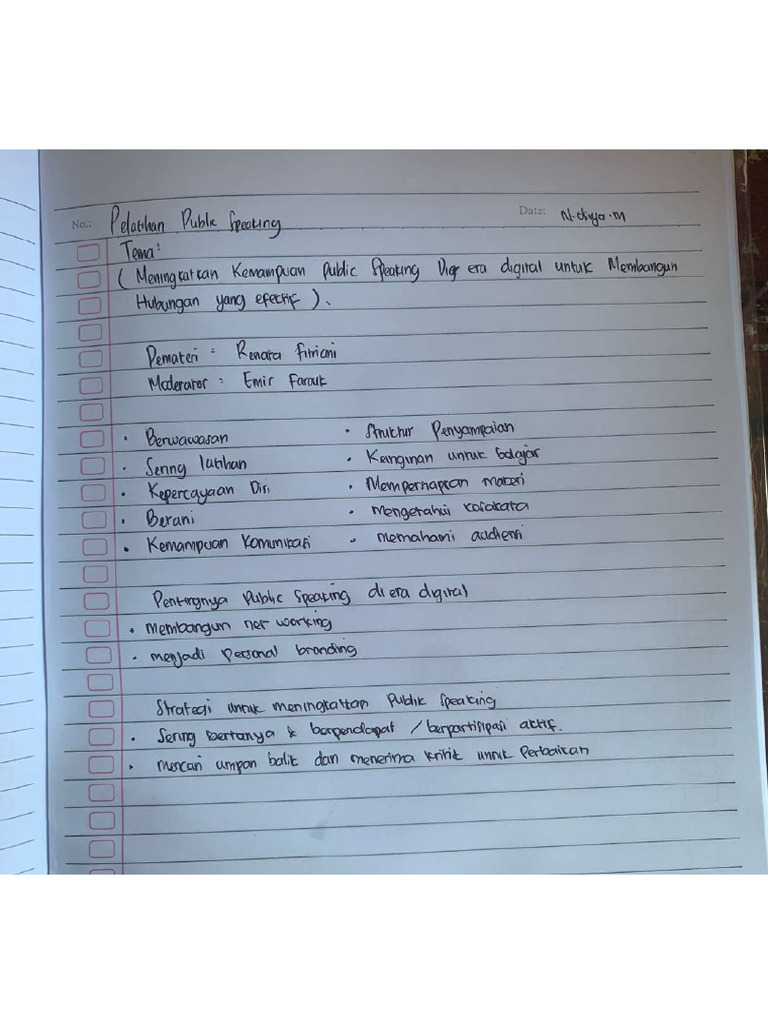 No.: Pelatihan Public Speaking
Date: N.diya.m
Tema:
( Meningkatkan Kemampuan Public Speaking era digital untuk Membangun
Hubungan yang efectif ).
Pemateri : Renata Fitriani
Moderator : Emir Farouk
• Berwawasan
• Sering latihan
• Kepercayaan Diri
• Berani
• Kemampuan Komunikasi
• Struktur Penyampaian
• Keinginan untuk belajar
• Mempersiapkan materi
• Mengetahui kosakata
• memahami audiens
Pentingnya Public Speaking di era digital
• membangun net working
• menjadi personal branding
Strategi untuk meningkatkan Public Speaking
• Sering bertanya & berpendapat / berpartisipasi aktif.
• mencari umpan balik dan menerima kritik untuk Perbaikan